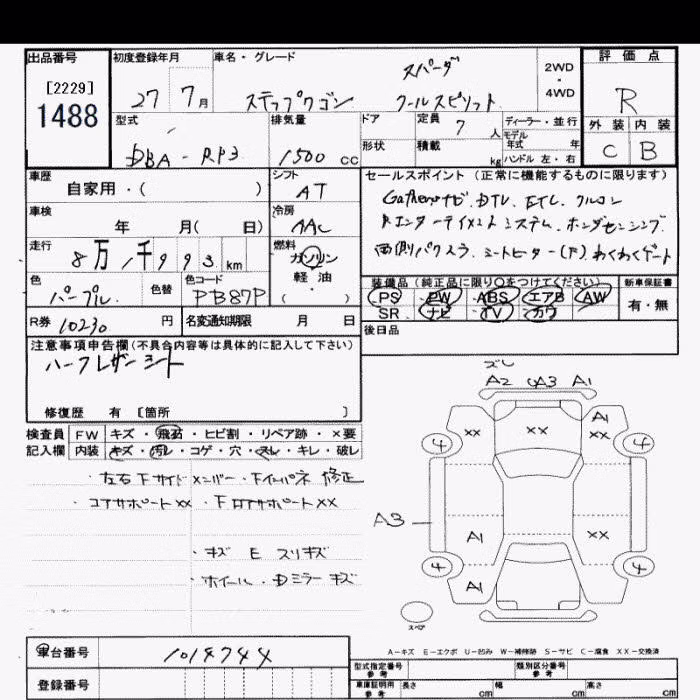 出品番号
[2229]
1488
初度登録年月
27 7月
車名・グレード
ステップワゴン スパーダ
クールスピリット
2WD
・
4WD
評価点
R
外装 内装
C B
型式
DBA-RP3
排気量
1500 cc
ドア
定員 7 人
形状
積載 kg
ディーラー・並行
モデル
年式 年
ハンドル 左・右
車歴
自家用・( )
シフト
AT
車検
年 月( 日)
冷房
AAC
走行
8万1千993km
燃料
ガソリン
軽油
( )
色
パープル
色替
色コード
PB87P
R券 10230 円
名変通知期限 月 日
セールスポイント(正常に機能するものに限ります)
Gathersナビ.DTV.ETC.クルコン
Rエンターテイメントシステム.ホンダセンシング
両側パワスラ.シートヒーター(F)わくわくゲート
装備品(純正品に限り○をつけてください)
PS PW ABS エアB AW
SR ナビ TV カワ
新車保証書
有・無
後日品
注意事項申告欄(不具合内容等は具体的に記入して下さい)
ハーフレザーシート
修復歴 有 [箇所 ]
検査員
記入欄
FW キズ・飛石・ヒビ割・リペア跡・×要
内装 キズ・汚レ・コゲ・穴・スレ・キレ・破レ
・左右Fサイドメンバー・Fインパネ 修正
・コアサポートXX ・FロアサポートXX
・キズ E スリキズ
・ホイール・Dミラーキズ
ズレ
A2 UA3 A1
XX XX A1
XX
4 4
A3
A1 XX
4 4
A1
スペア
A-キズ E-エクボ U-凹み W-補修跡 S-サビ C-腐食 XX-交換済
車台番号 1014744
登録番号
型式指定番号
参考
類別区分番号
参考
車庫証明用
参考
長さ cm 幅 cm 高さ cm